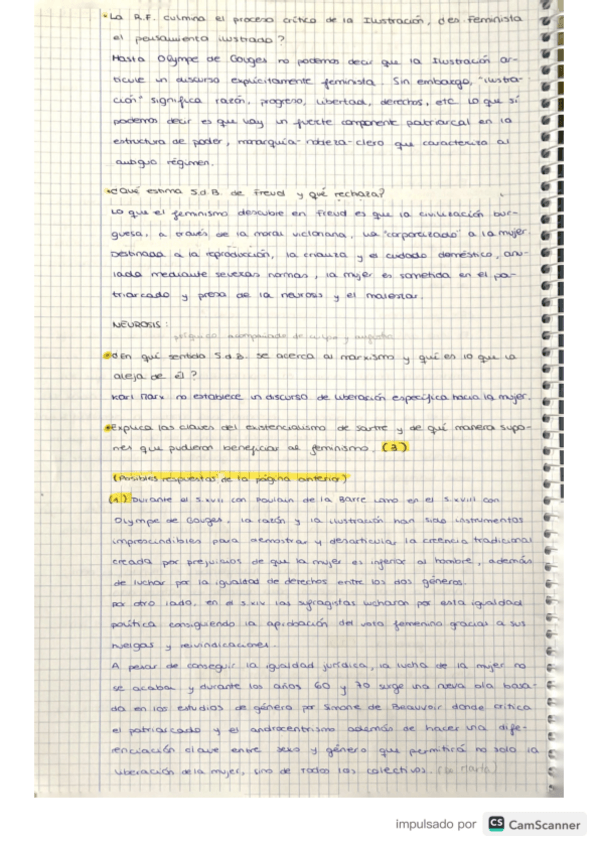 ·La R.F. culmina el proceso crítico de la Ilustración, ¿es feminista
el pensamiento ilustrado?
Hasta Olympe de Gouges no podemos decir que la Ilustración ar-
ticule un discurso explícitamente feminista. Sin embargo, "ilustra-
ción" significa razón, progreso, libertad, derechos, etc. Lo que sí
podemos decir es que hay un fuerte componente patriarcal en la
estructura de poder, monarquía-nobleza-clero que caracteriza al
antiguo régimen.
·¿Qué estima S.d.B. de Freud y qué rechaza?
Lo que el feminismo descubre en Freud es que la civilización bur-
guesa, a través de la moral victoriana, ha "corporeizado" a la mujer.
Destinada a la reproducción, la crianza y el cuidado doméstico, anu-
lada mediante severas normas, la mujer es sometida en el pa-
triarcado y presa de la neurosis y el malestar.
NEUROSIS:
acompañado de culpa y angustia
·¿En qué sentido S.d.B. se acerca al marxismo y qué es lo que la
aleja de él?
Karl Marx no establece un discurso de liberación específica hacia la mujer.
·Explica las claves del existencialismo de Sartre y de qué manera supo-
nes que pudieron beneficiar al feminismo. (3)
(Posibles respuestas de la página anterior)
(1) Durante el s.XVII con Poulain de la Barre como en el s.XVIII con
Olympe de Gouges, la razón y la ilustración han sido instrumentos
imprescindibles para demostrar y desarticular la creencia tradicional
creada por prejuicios de que la mujer es inferior al hombre, además
de luchar por la igualdad de derechos entre los dos géneros.
Por otro lado, en el s.XIX las sufragistas lucharon por esta igualdad
política consiguiendo la aprobación del voto femenino gracias a sus
huelgas y reivindicaciones.
A pesar de conseguir la igualdad jurídica, la lucha de la mujer no
se acaba y durante los años 60 y 70 surge una nueva ola basa-
da en los estudios de género por Simone de Beauvoir donde critica
el patriarcado y el androcentrismo además de hacer una dife-
renciación clave entre sexo y género que permitirá no solo la
liberación de la mujer, sino de todos los colectivos. (la Marta)
impulsado por CS CamScanner